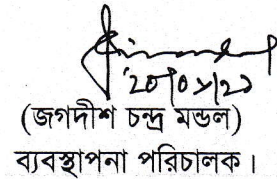 (জগদীশ চন্দ্র মন্ডল)
ব্যবস্থাপনা পরিচালক।